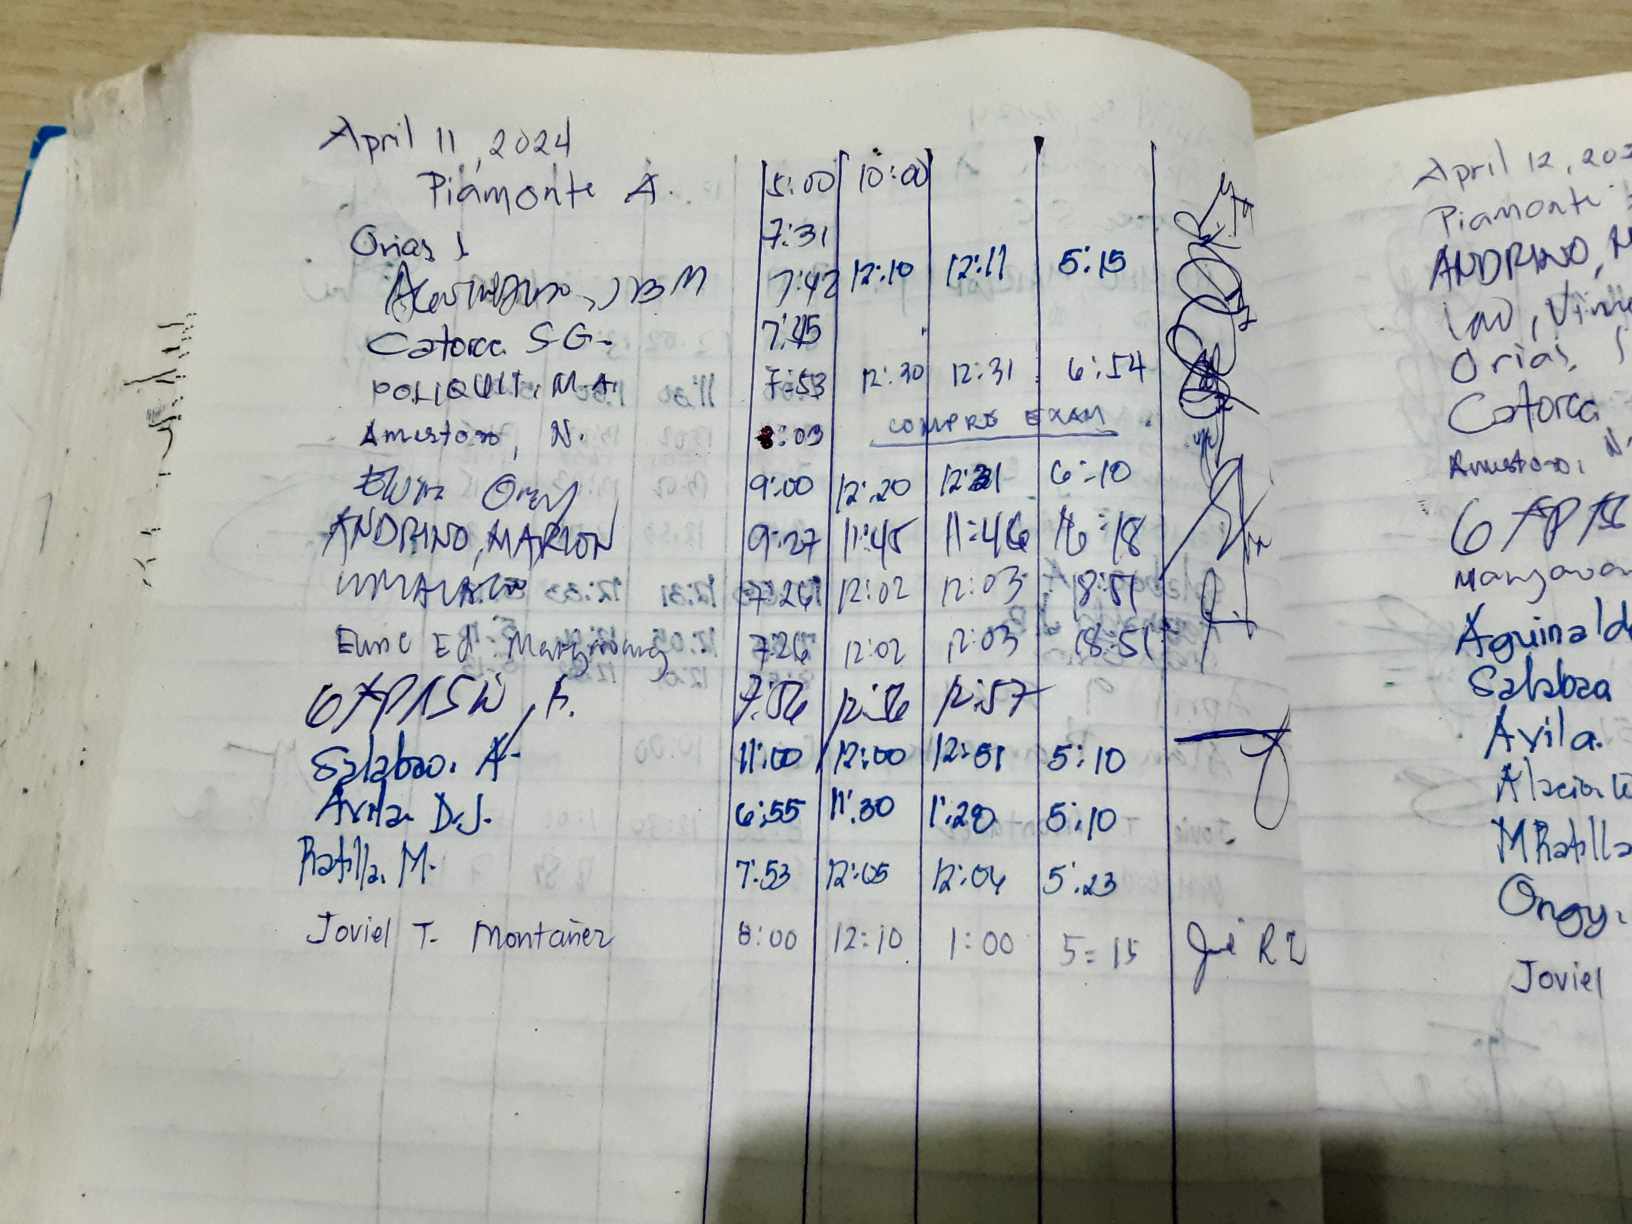 April 11, 2024
Piamonte A. 5:00 10:00
Orias J 7:31
7:42 12:10 12:11 5:15
Catorce S.G. 7:45
POLIQUIT, M.A. 7:53 12:30 12:31 6:54
Amestoso, N. 8:03 COMPRE EXAM
Ongy 9:00 12:20 12:21 6:10
ANDRINO, MARION 9:27 11:45 11:46 16:18
7:26 12:02 12:03 18:51
7:26 12:02 12:03 18:51
7:56 12:56 12:57
Salabao. A- 11:00 12:00 12:51 5:10
Avila D.J. 6:55 11:30 1:20 5:10
Ratilla. M. 7:53 12:05 12:06 5:23
Joviel T. Montañez 8:00 12:10 1:00 5=15
April 12, 202
Piamonte
ANDRINO, M
Orias,
Catorce
Amestoso, N.
Aguinald
Salabao
Avila.
MRatilla
Ongy,
Joviel